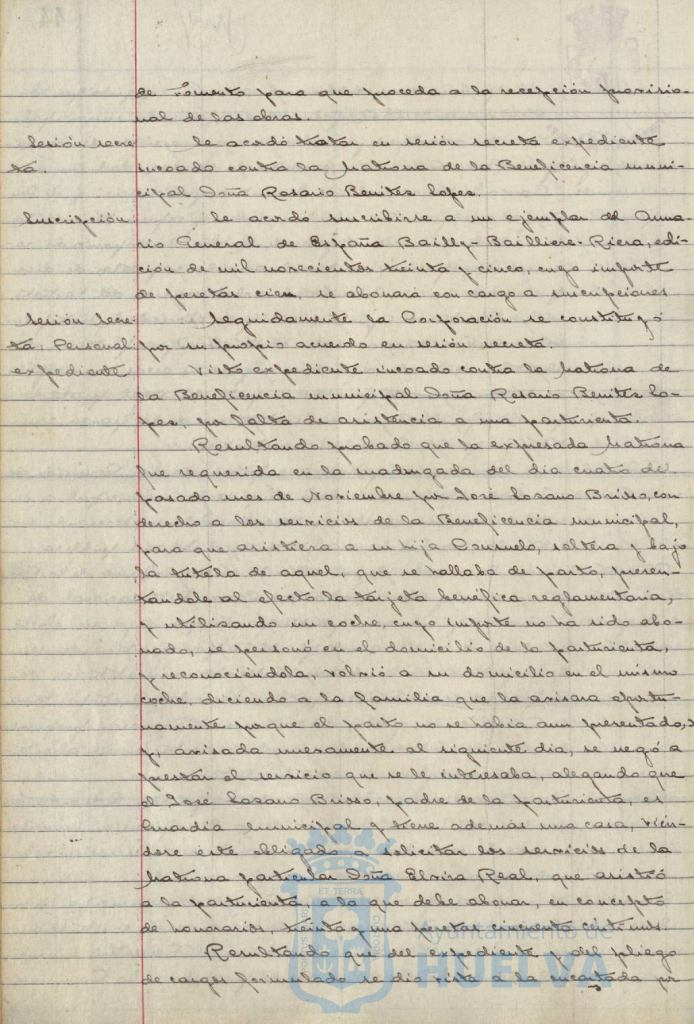 de Fomento para que proceda a la recepción provisio-
nal de las obras.
Sesión secre-
ta.
Se acordó tratar en sesión secreta expediente
incoado contra la Matrona de la Beneficencia muni-
cipal Doña Rosario Benites Lopes.
Suscripción.
Se acordó suscribirse a un ejemplar del Anua-
rio General de España Bailly-Bailliere-Riera, edi-
ción de mil novecientos treinta y cinco, cuyo importe
de pesetas cien, se abonará con cargo a suscripciones
Sesión secre-
ta. Personal:
expediente
Seguidamente la Corporación se constituyó
por su propio acuerdo en sesión secreta.
Visto expediente incoado contra la Matrona de
la Beneficencia municipal Doña Rosario Benites Lo-
pes, por falta de asistencia a una parturienta.
Resultando probado que la expresada Matrona
fue requerida en la madrugada del dia cuatro de
pasado mes de Noviembre por José Lozano Brisso, con
derecho a los servicios de la Beneficencia municipal,
para que asistiera a su hija Consuelo, soltera y bajo
la tutela de aquel, que se hallaba de parto, presen-
tándole al efecto la tarjeta benéfica reglamentaria,
y utilizando un coche, cuyo importe no ha sido abo-
nado, se personó en el domicilio de la parturienta,
y reconociéndola, volvió a su domicilio en el mismo
coche, diciendo a la familia que la avisara oportu-
namente porque el parto no se había aun presentado,
y, avisada nuevamente al siguiente dia, se negó a
prestar el servicio que se le interesaba, alegando que
el José Lozano Brisso, padre de la parturienta, es
Guardia municipal y tiene además una casa, vien-
dose este obligado a solicitar los servicios de la
Matrona particular Doña Elvira Real, que asistió
a la parturienta, a la que debe abonar, en concepto
de honorarios, treinta y una pesetas cincuenta céntimos.
Resultando que del expediente y del pliego
de cargos formulado se dio vista a la encartada por
Ayuntamiento de
HUELVA